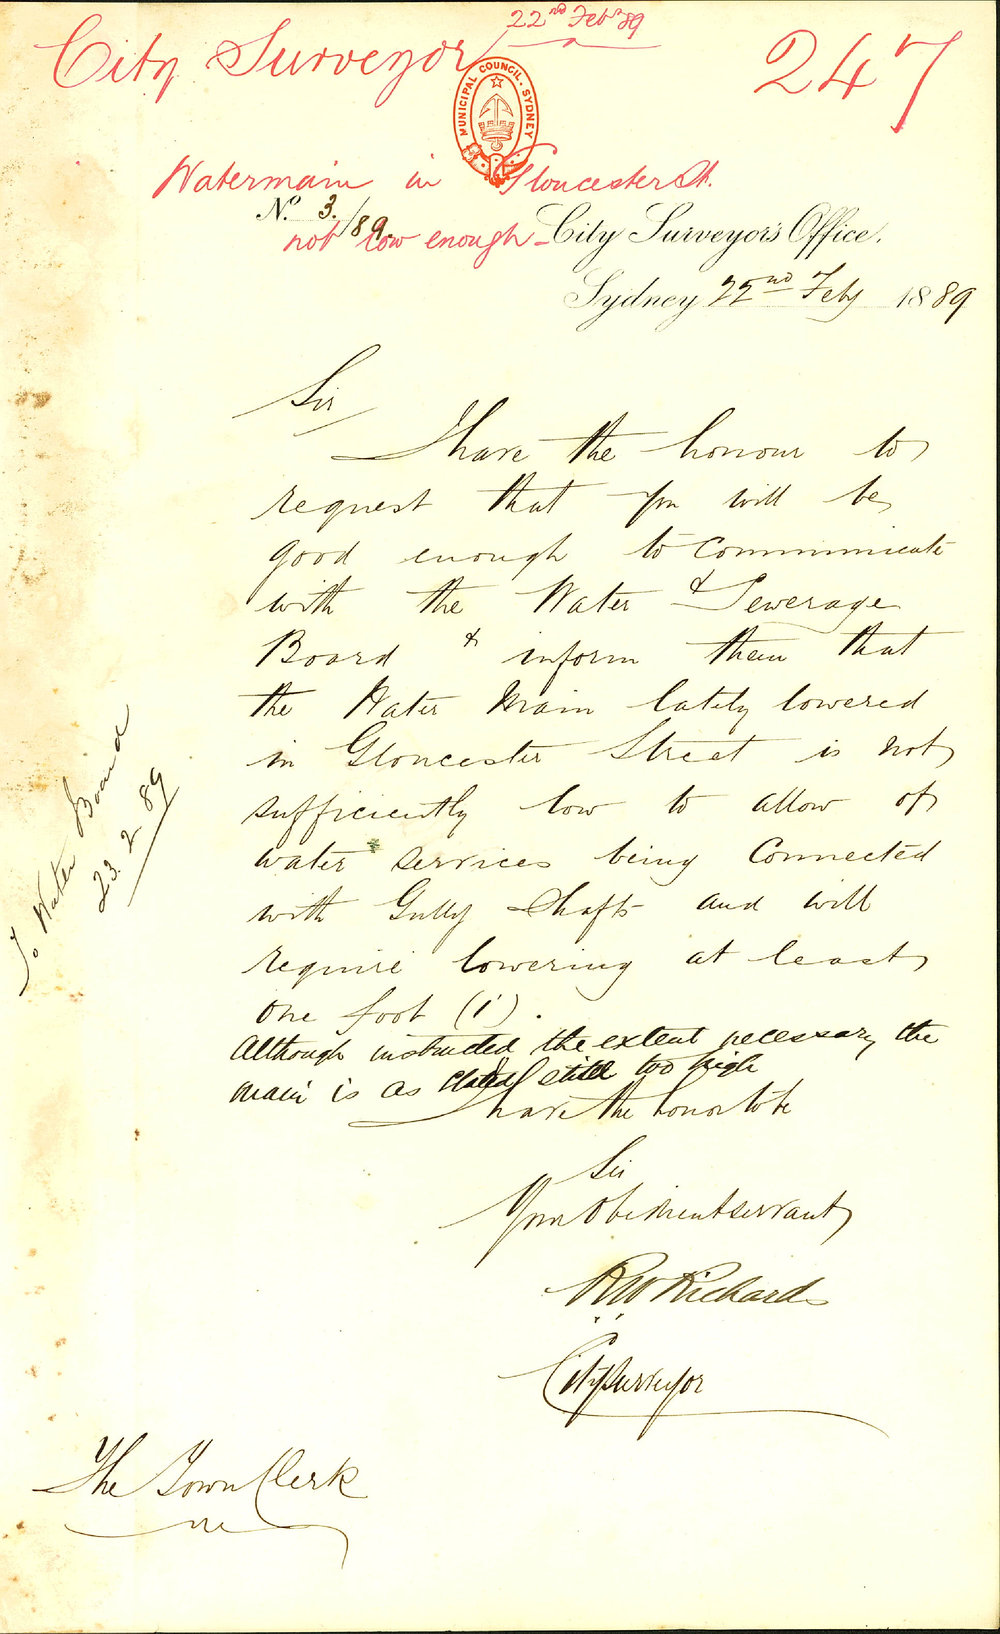 22nd Feb 89
City Surveyor
247
MUNICIPAL COUNCIL. SYDNEY
Watermain in Gloucester St.
No. 3./89.
not low enough – City Surveyor's Office.
Sydney 22nd Feby 1889
Sir
I have the honour to
request that you will be
good enough to communicate
with the Water & Sewerage
Board & inform them that
the Water Main lately lowered
in Gloucester Street is not
sufficiently low to allow of
water services being Connected
with Gully Shafts and will
require lowering at least
one foot (1').
Although instructed the extent necessary the
main is as stated still too high
I have the honor to be
Sir
Your Obedient servant
RW Richards
City Surveyor
The Town Clerk
To Water Board
23. 2 89